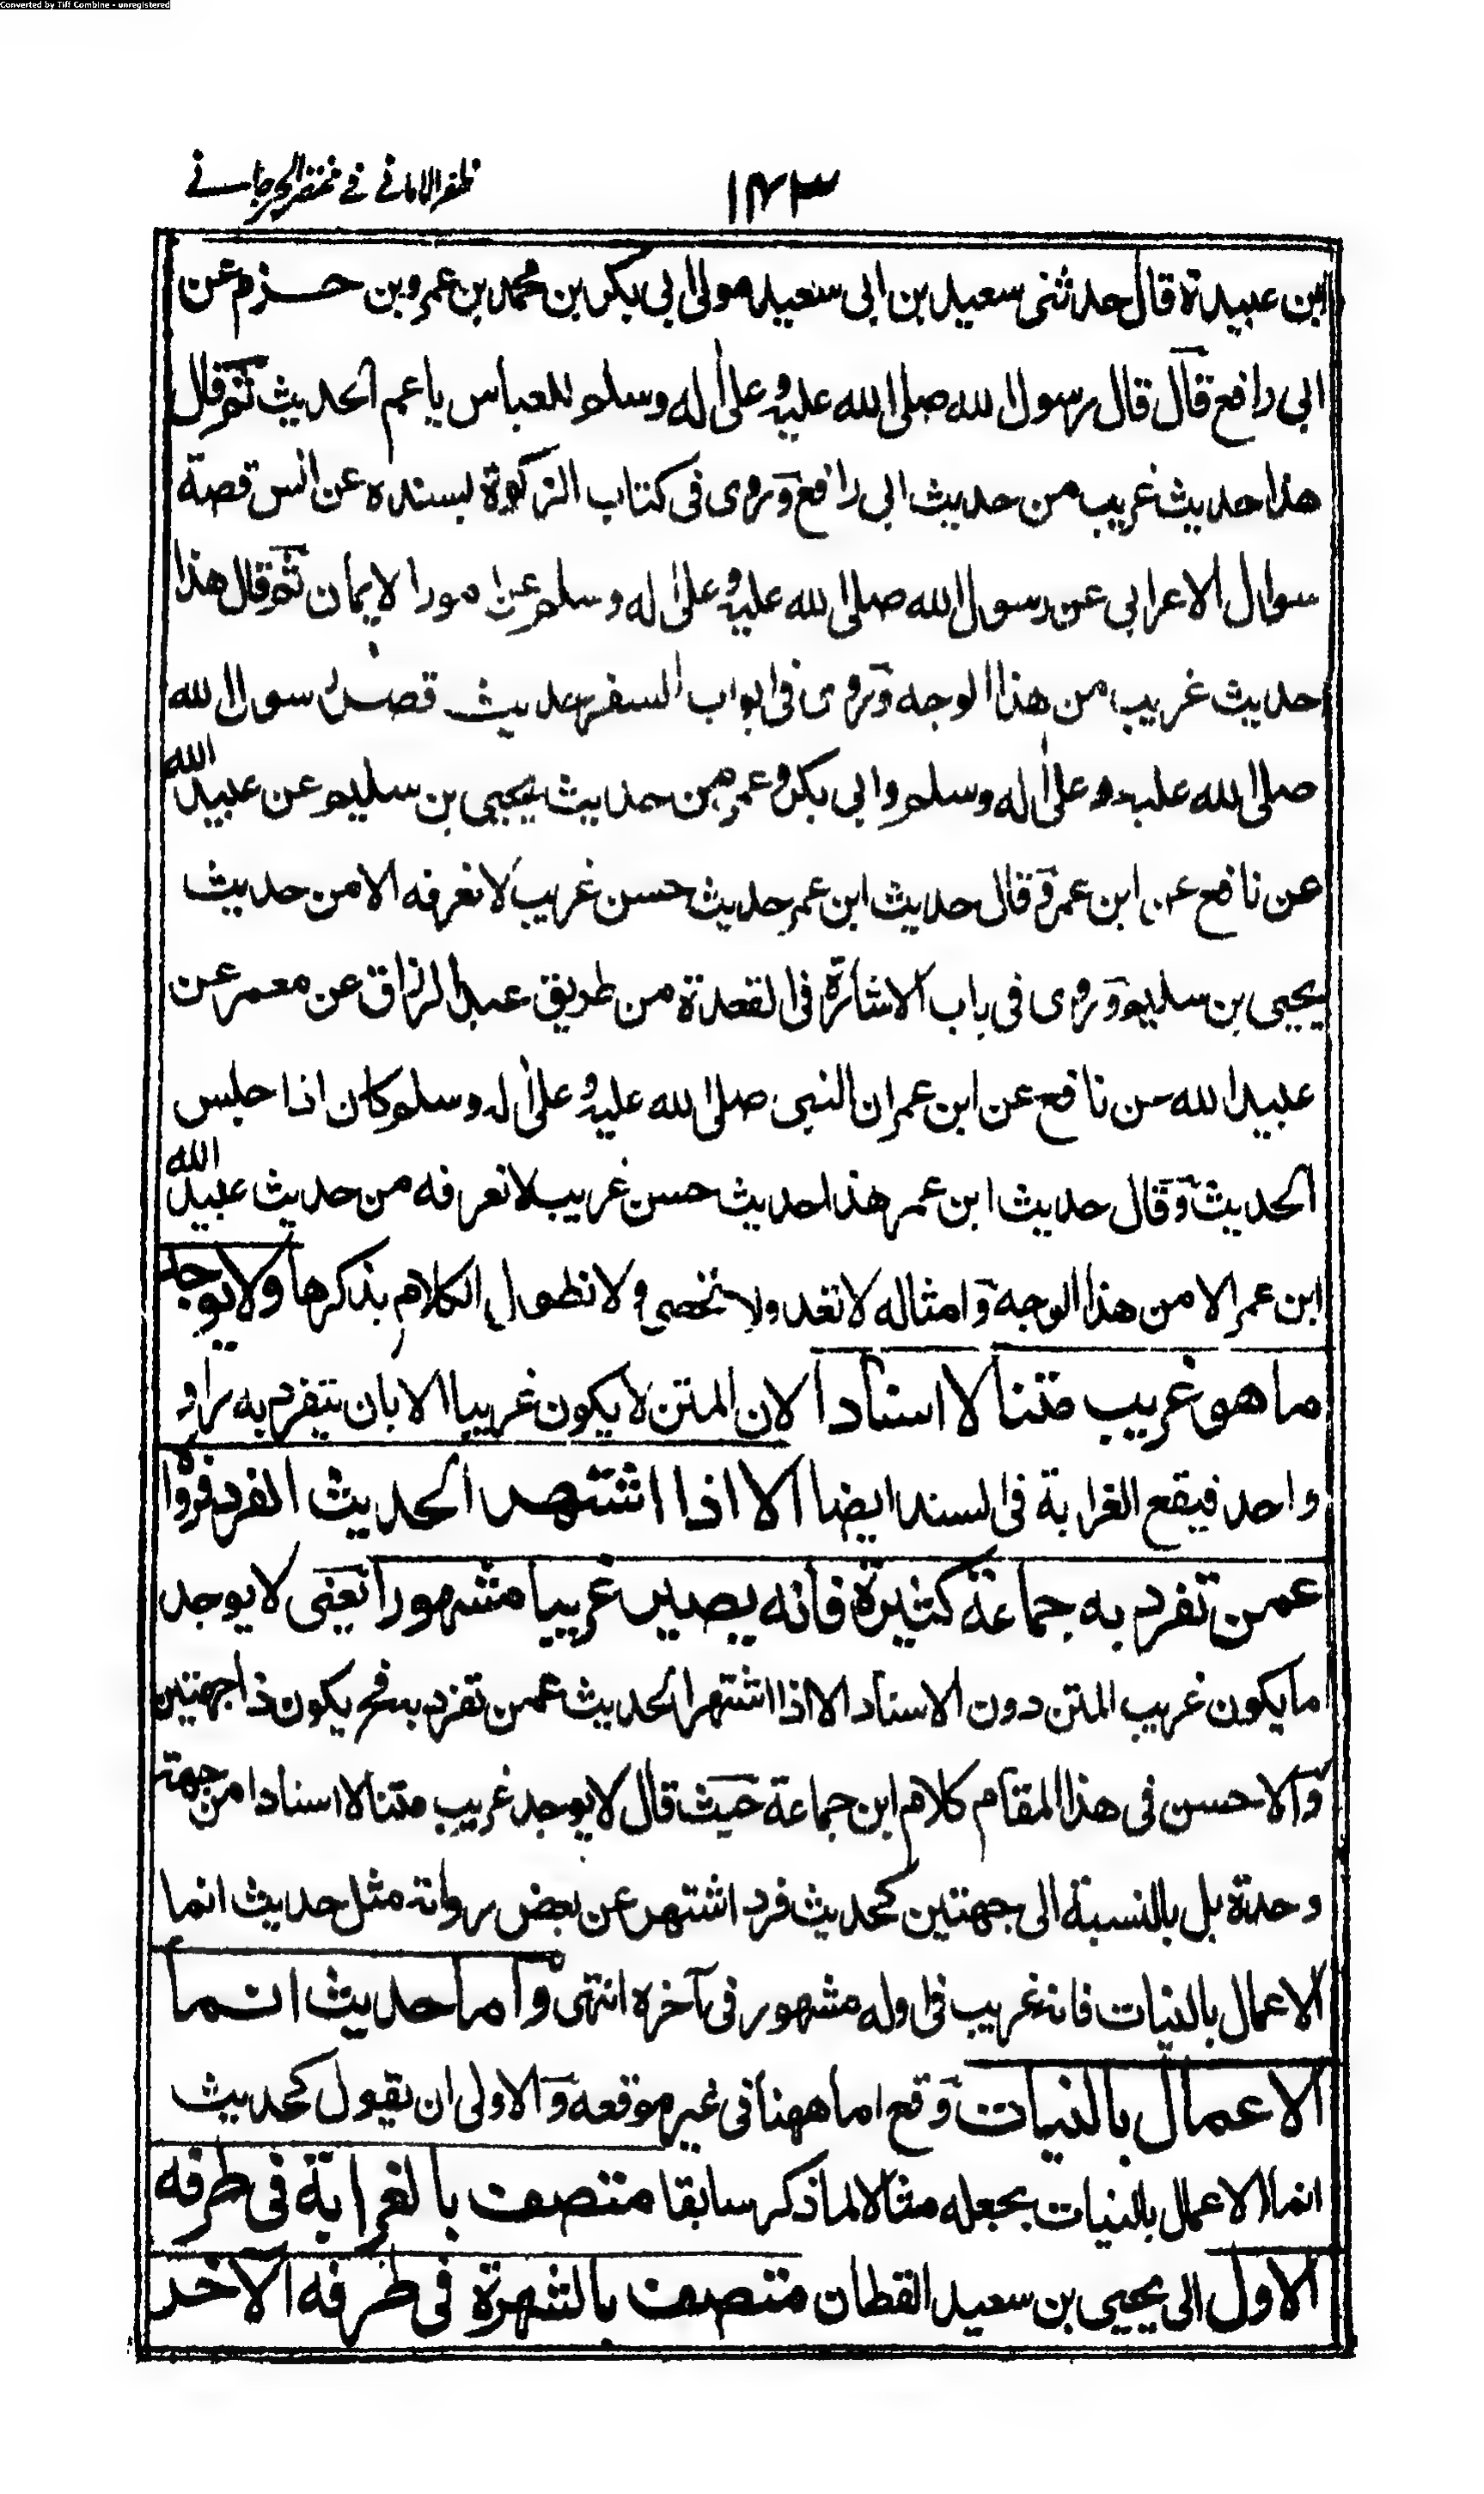 Converted by Tiff Combine - unregistered
١٤٣
ظفر الامانى فى مختصر الجرجانى
ابن عبيدة قال حدثنى سعيد بن ابى سعيد مولى ابى بكر بن محمد بن عمرو بن حزم عن
ابى رافع قال قال رسول الله صلى الله عليه وعلى اله وسلم للعباس يا عم الحديث ثم قال
هذا حديث غريب من حديث ابى رافع وروى فى كتاب الزكوة بسنده عن انس قصة
سوال الاعرابى عن رسول الله صلى الله عليه وعلى اله وسلم عن امور الايمان ثم قال هذا
حديث غريب من هذا الوجه وروى فى ابواب السفر حديث قصر رسول الله
صلى الله عليه وعلى اله وسلم وابى بكر وعمر من حديث يحيى بن سليم عن عبيد الله
عن نافع عن ابن عمر وقال حديث ابن عمر حديث حسن غريب لا نعرفه الا من حديث
يحيى بن سليم وروى فى باب الاشارة فى القعدة من طريق عبد الرزاق عن معمر عن
عبيد الله عن نافع عن ابن عمر ان النبى صلى الله عليه وعلى اله وسلم كان اذا جلس
الحديث وقال حديث ابن عمر هذا حديث حسن غريب لا نعرفه من حديث عبيد الله
ابن عمر الا من هذا الوجه وامثاله لا تعد ولا تحصى ولا نطول الكلام بذكرها ولا يوجد
ما هو غريب متنا لا اسنادا لان المتن لا يكون غريبا الا بان يتفرد به راو
واحد فيقع الغرابة فى السند ايضا الا اذا اشتهر الحديث الفرد فرواه
عمن تفرد به جماعة كثيرة فانه يصير غريبا مشهورا يعنى لا يوجد
ما يكون غريب المتن دون الاسناد الا اذا اشتهر الحديث عمن تفرد به فح يكون ذا جهتين
والاحسن فى هذا المقام كلام ابن جماعة حيث قال لا يوجد غريب متنا لا اسنادا من جهة
وحدة بل بالنسبة الى جهتين كحديث فرد اشتهر عن بعض رواته مثل حديث انما
الاعمال بالنيات فانه غريب فى اوله مشهور فى آخره انتهى واما حديث انما
الاعمال بالنيات وقع اما ههنا فى غير موقعه والاولى ان يقول كحديث
انما الاعمال بالنيات بجعله مثالا لما ذكر سابقا متصف بالغرابة فى طرفه
الاول الى يحيى بن سعيد القطان متصف بالشهرة فى طرفه الاخر